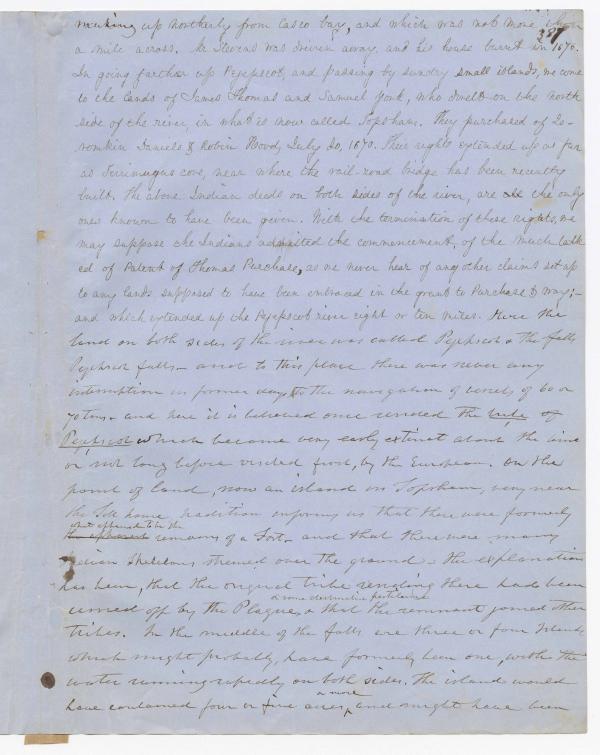 making up northerly from Casco bay, and which was not more than
a mile across. Mr Stevens was driven away, and his house burnt in 1670.
In going farther up Pejepscot, and passing by sundry small islands, we come
to the lands of James Thomas and Samuel York, who dwelt on the north
side of the river, in what is now called Topsham. They purchased of
Daniels & Robin Hood, July 20, 1670. Their rights extended up as far
as cove, near where the rail-road bridge has been recently
built. The above Indian deeds on both sides of the river, are the only
ones known to have been given. With the termination of these rights, we
may suppose the Indians admitted the commencement, of the much talk
ed of Patent of Thomas Purchase, as we never hear of any other claims set up
to any lands supposed to have been embraced in the grant to Purchase & Way;-
and which extended up the Pejepscot river eight or ten miles. Here the
land on both sides of the river was called Pejepscot & the falls
Pejepscot falls - to this place there was never any
interruption in former days to the navigation of vessels of 60 or
70 tons - and here it is believed once resided the tribe of
Pejepscot which became very early extinct about the time
or not long before visited first, by the European. On the
point of land, now an island in Topsham, very near
the Toll house tradition informs us that there were formerly
what appeared to be the
remains of a Fort - and that there were many
Indian Skeletons strewed over the ground - the explanation
has been, that the original tribe residing there had been
& some destructive pestilence
carried off by the Plague & that the remnant joined other
tribes. In the middle of the falls are three or four Islands
which might probably, have formerly been one, with the
water running rapidly on both sides. The island would
a more
have contained four or five acres, and might have been